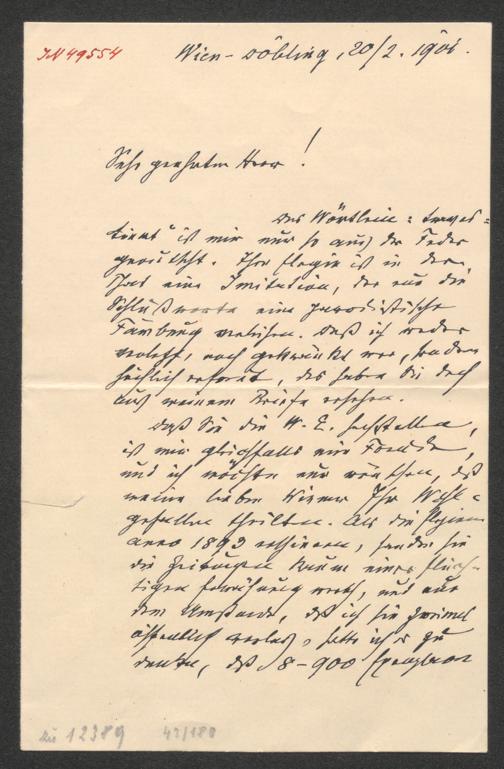 IN 49554
Wien-Döbling, 20/2. 1901.
Sehr geehrter Herr!
Das Wörtlein: "traves=
tirt" ist mir nur so aus der Feder
gerutscht. Ihre Elegie ist in der
That eine Imitation, der nur die
Schlußworte eine parodistische
Färbung verleihen. Daß ich weder
verletzt, noch gekränkt war, sondern
höchlich erfreut, das haben Sie doch
aus meinem Briefe ersehen.
Daß Sie die W. E. hochstellen,
ist mir gleichfalls eine Freude,
und ich möchte nur wünschen, daß
meine lieben Wiener Ihr Wohl=
gefallen theilten. Als die Elegien
anno 1893 erschienen, fanden sie
die Zeitungen kaum einer flüch=
tigen Erwähnung werth, und nur
dem Umstande, daß ich sie zweimal
öffentlich vorlas, hatte ich es zu
danken, daß 8-900 Exemplare
12389 42/180